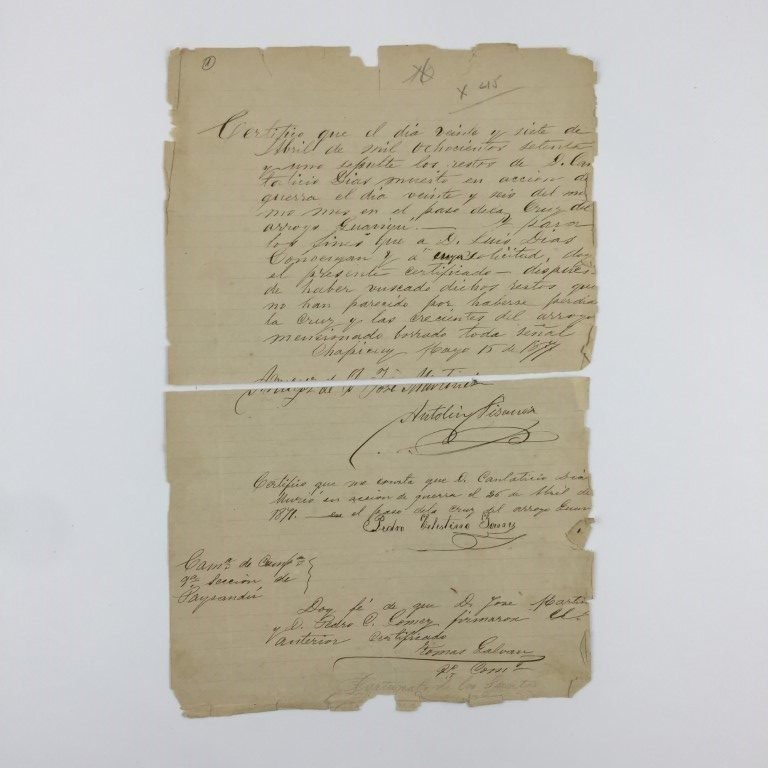 1
X 415
Certifico que el dia veinte y siete de
Abril de mil ochocientos setenta
y uno sepulté los restos de D. Can
talicio Dias muerto en accion de
guerra el dia veinte y seis del mis
mo mes en el paso dela Cruz del
arroyo Guaviyú. — Y para
los fines que a D. Luis Dias
Convengan y á cuya solicitud, doy
el presente certificado — despues
de haber buscado dichos restos, que
no han parecido por haberse perdido
la Cruz y las crecientes del arroyo
mencionado borrado toda señal
Chapicuy Mayo 15 de 1877
Arruego de D. José Martinez
Antolin
Certifico que me consta que D. Cantalicio Dias
Murió en accion de guerra el 26 de Abril de
1871. — en el paso dela Cruz del arroyo Guavi
Pedro Celestino Gomez
Comª de Campª
7ª Seccion de
Paysandú
Doy fé de que D. José Martin
y D. Pedro C. Gomez firmaron el
anterior Certificado
Tomas Galvan
Comº